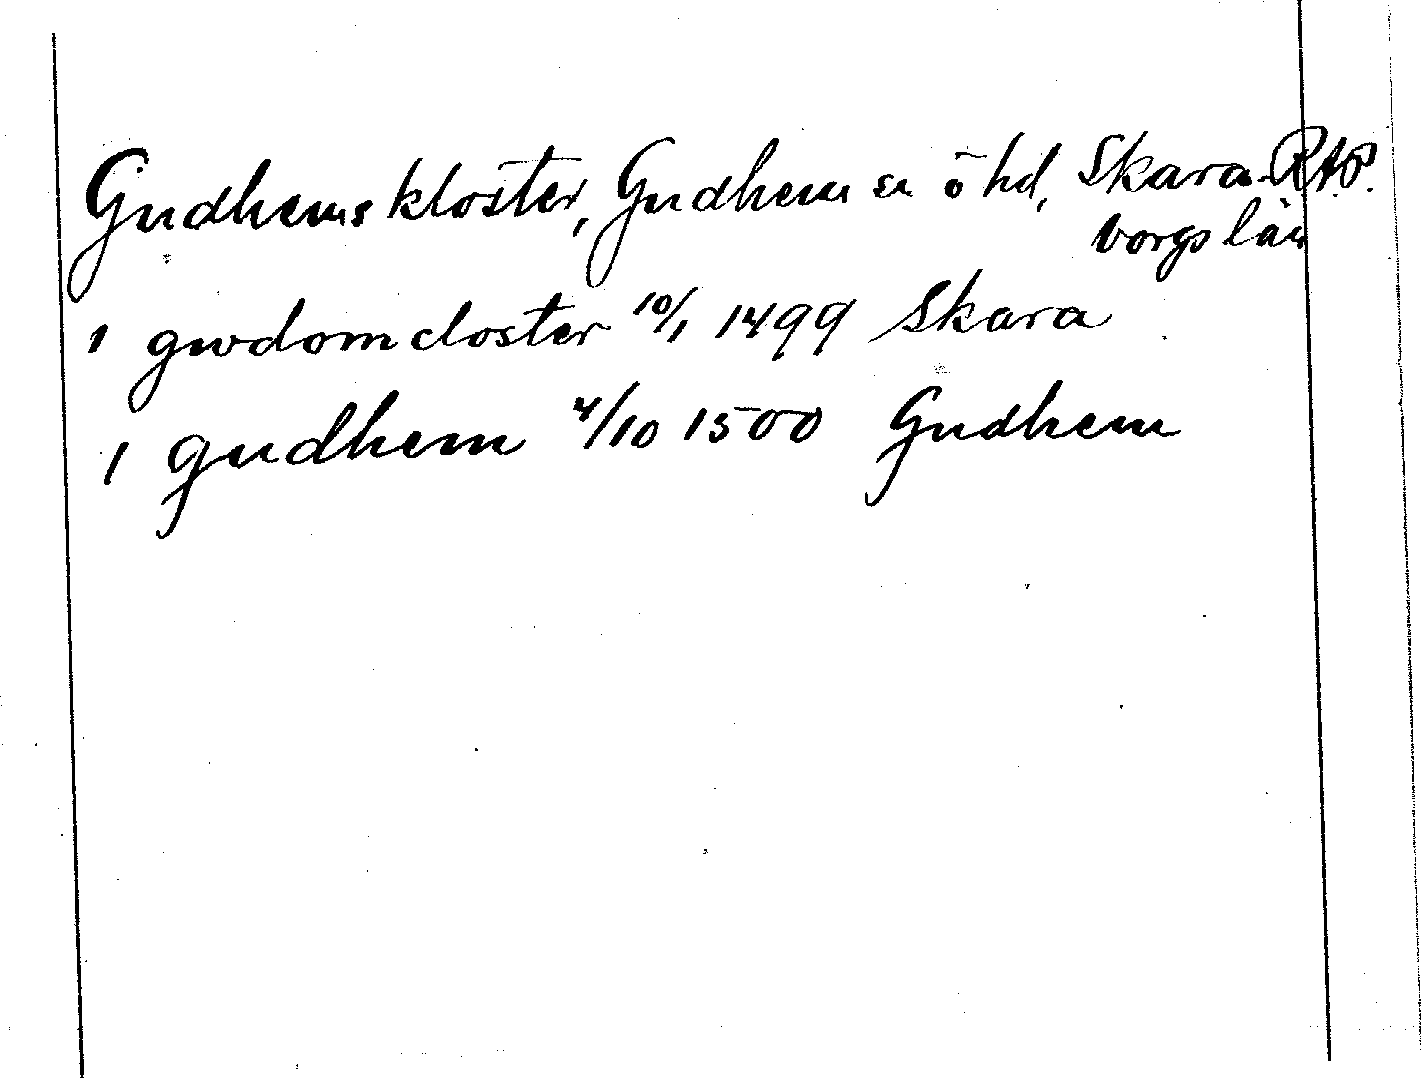 Gudhems kloster, Gudhem sn o hd, Skara- RAP.
borgs län
1 gwdom closter 10/1 1499 Skara
1 gudhem 4/10 1500 Gudhem